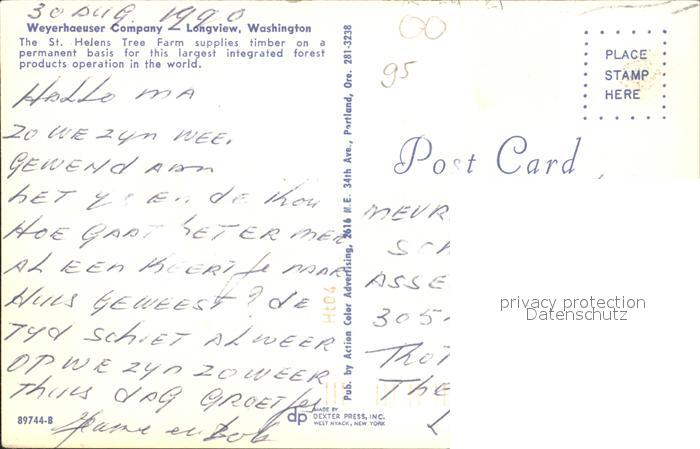 30 AUG. 1990
Weyerhaeuser Company – Longview, Washington
The St. Helens Tree Farm supplies timber on a
permanent basis for this largest integrated forest
products operation in the world.
HALLO MA
ZO WE ZYN WEE.
GEWEND AAN
HET EN DE
HOE GAAT HET ER MEE
AL EEN KEERTJE NAAR
HUIS GEWEEST? DE
TYD SCHIET AL WEER
OP WE ZYN ZO WEER
THUIS DAG GROETJES
en Bob
89744-B
Pub. by Action Color Advertising, 2616 N.E. 34th Ave., Portland, Ore. 281-3238
Ht04
dp
MADE BY
DEXTER PRESS, INC.
WEST NYACK, NEW YORK
00
95
PLACE
STAMP
HERE
Post Card
MEVR
SCH
ASSE
305
THE
privacy protection
Datenschutz